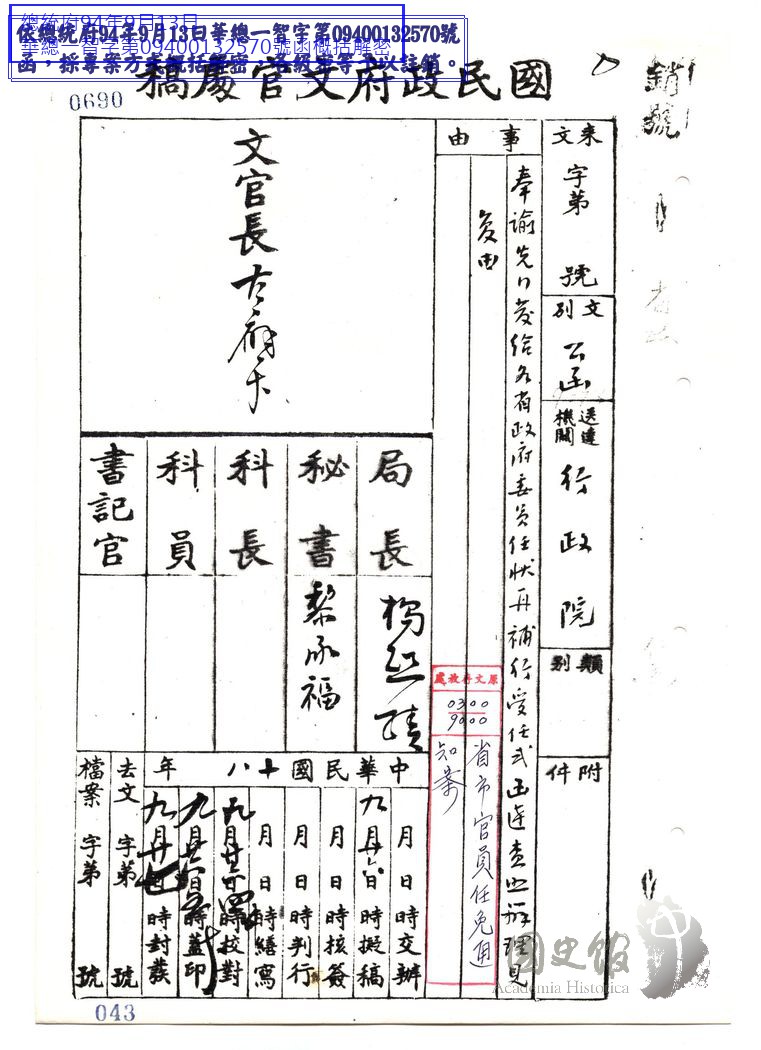 總統府94年9月13月
華總一智字第09400132570號函概括解密
依總統府94年9月13日華總一智字第09400132570號
函,採專案方式概括解密,各級密等予以註銷。
國民政府文官處稿
0690
銷號
來文 字第 號
文別 公函
送達機關 行政院
類別
附件
事由
奉諭先行發給各省政府委員任狀再補行受任式函達查照辦理見
復由
文官長古
局長 楊熙績
秘書 黎承福
科長
科員
書記官
原文存放處
0300
9000
省市官員任免通
知案
中華民國十八年
月 日 時交辦
九月廿六日 時擬稿
月 日 時核簽
月 日 時判行
月 日 時繕寫
九月廿 時校對
九月廿 日 時蓋印
九月廿七日 時封發
去文 字第 號
檔案 字第 號
043
國史館
Academia Historica